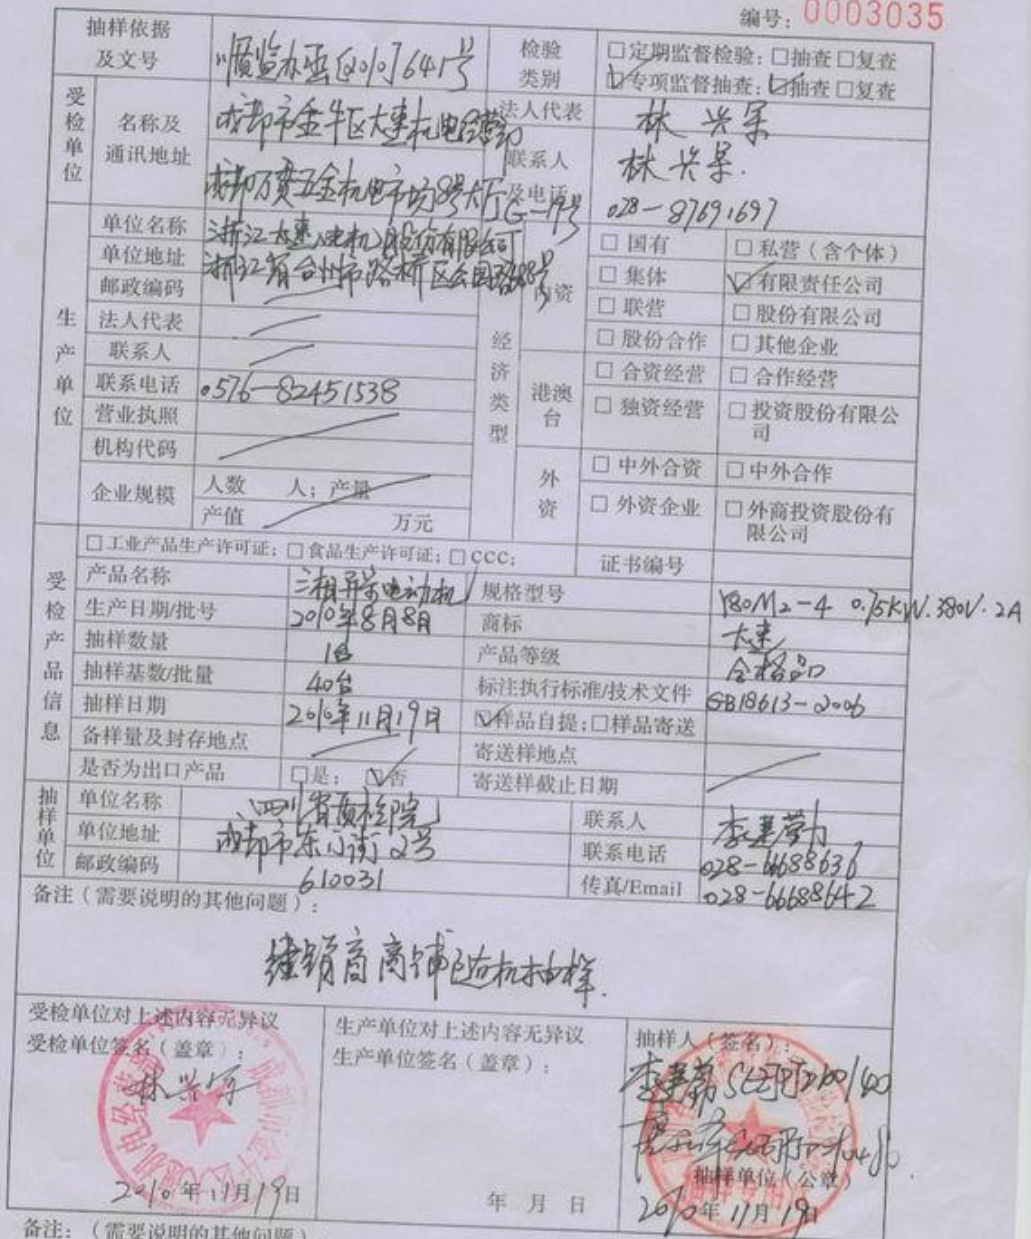 编号: 0003035
抽样依据及文号 川质监办函[2010]641号 检验类别 □定期监督检验: □抽查 □复查
☑专项监督抽查: ☑抽查 □复查
受检单位 名称及通讯地址 成都市金牛区大速机电经营部 法人代表 林兴
成都万贯五金机电市场8号大厅 联系人及电话 林兴
028-87691697
生产单位 单位名称 浙江大速电机股份有限公司
单位地址 浙江省台州市路桥区
邮政编码
法人代表
联系人
联系电话 0576-82451538
营业执照
机构代码
企业规模 人数 人; 产量
产值 万元
经济类型
内资 □国有 □私营(含个体)
□集体 ☑有限责任公司
□联营 □股份有限公司
□股份合作 □其他企业
港澳台 □合资经营 □合作经营
□独资经营 □投资股份有限公司
外资 □中外合资 □中外合作
□外资企业 □外商投资股份有限公司
受检产品信息 □工业产品生产许可证; □食品生产许可证; □CCC; 证书编号
产品名称 三相异步电动机 规格型号 Y80M2-4 0.75KW.380V.2A
生产日期/批号 2010年8月8日 商标 大速
抽样数量 1台 产品等级 合格品
抽样基数/批量 40台 标注执行标准/技术文件 GB18613-2006
抽样日期 2010年11月19日 ☑样品自提; □样品寄送
备样量及封存地点 寄送样地点
是否为出口产品 □是; ☑否 寄送样截止日期
抽样单位 单位名称 四川省质检院 联系人 李
单位地址 成都市东 街2号 联系电话 028-66688636
邮政编码 610031 传真/Email 028-66688642
备注(需要说明的其他问题):
经销商商铺随机抽样.
受检单位对上述内容无异议 生产单位对上述内容无异议 抽样人(签名):
受检单位签名(盖章): 生产单位签名(盖章):
林兴
抽样单位(公章)
2010年11月19日 年 月 日 2010年11月19日
备注: (需要说明的其他问题)